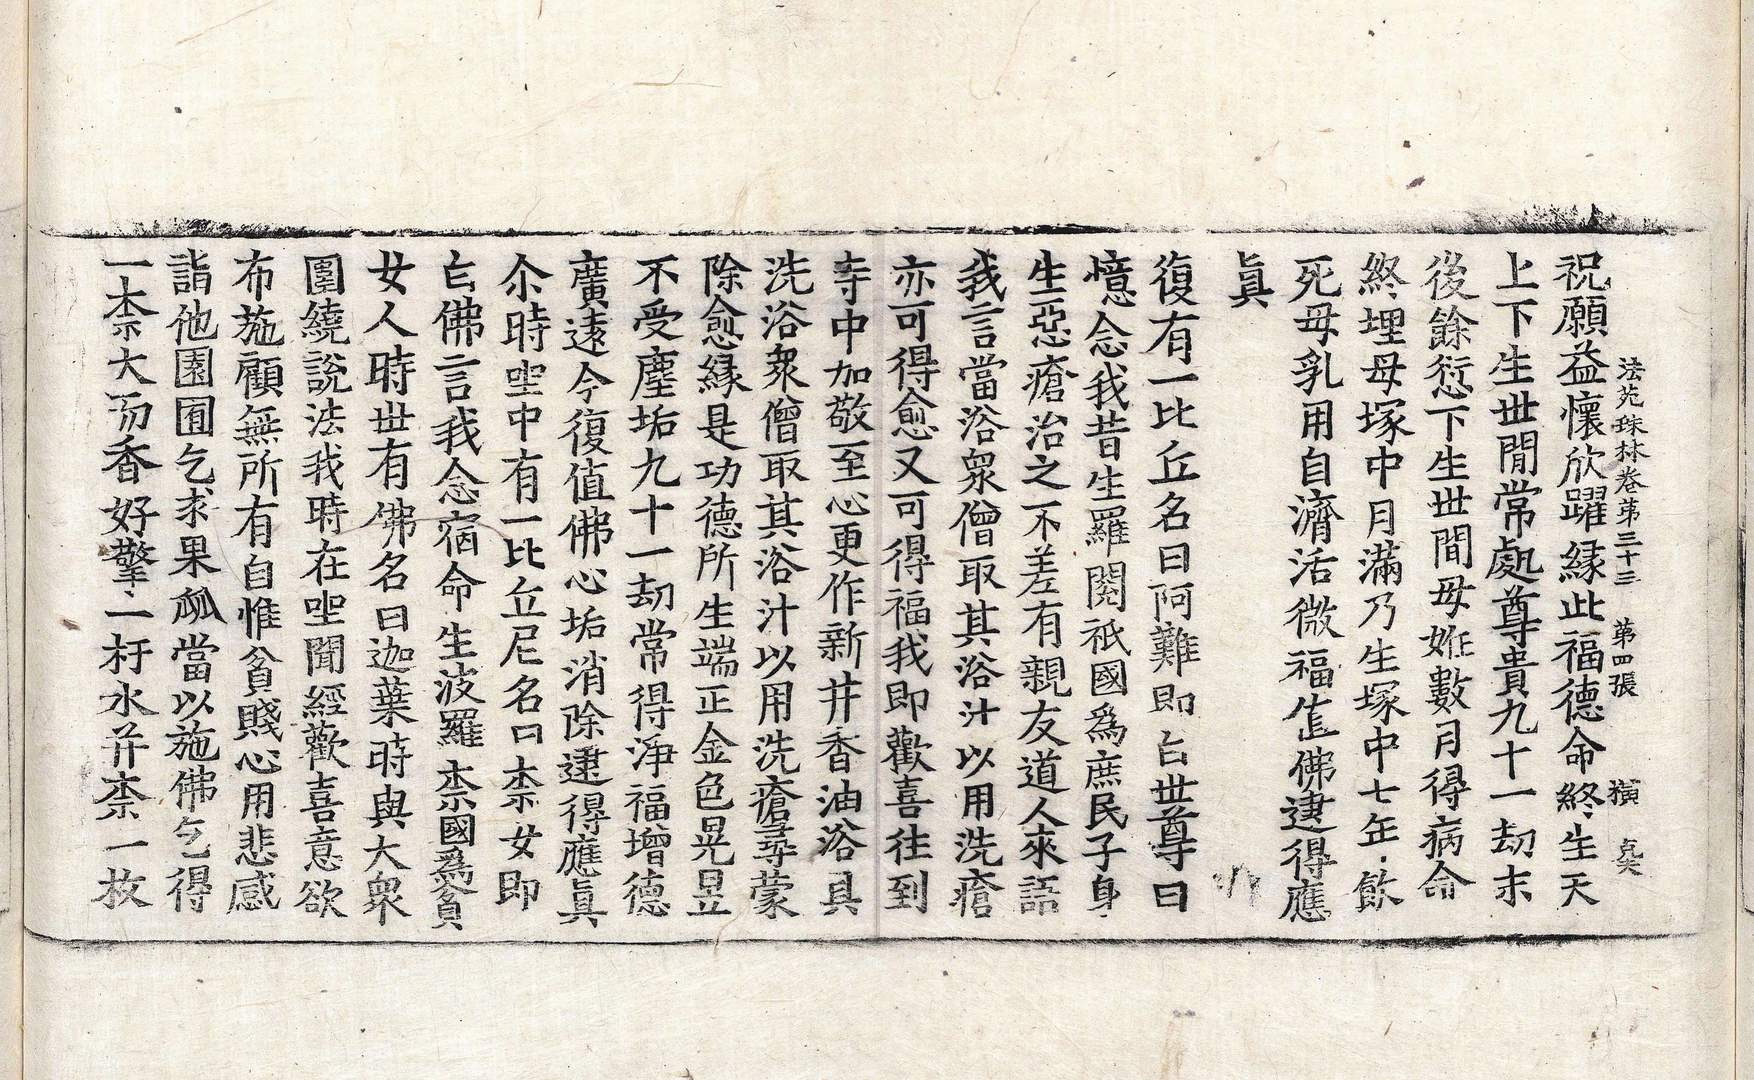 法苑珠林卷第三十三 第四張 橫
祝願益懷欣躍緣此福德命終生天
上下生世閒常處尊貴九十一劫末
後餘愆下生世間母妊數月得病命
終埋母塚中月滿乃生塚中七年飲
死母乳用自濟活微福值佛逮得應
眞
復有一比丘名曰阿難即白世尊曰
憶念我昔生羅閱祇國爲庶民子身
生惡瘡治之不差有親友道人來語
我言當浴衆僧取其浴汁以用洗瘡
亦可得愈又可得福我即歡喜往到
寺中加敬至心更作新井香油浴具
洗浴衆僧取其浴汁以用洗瘡尋蒙
除愈緣是功德所生端正金色晃昱
不受塵垢九十一劫常得淨福增德
廣遠今復值佛心垢消除逮得應眞
尒時聖中有一比丘尼名曰柰女即
白佛言我念宿命生波羅柰國爲貧
女人時世有佛名曰迦葉時與大衆
圍繞說法我時在坐聞經歡喜意欲
布施顧無所有自惟貧賤心用悲感
詣他園圃乞求果蓏當以施佛乞得
一柰大而香好擎一杅水并柰一枚